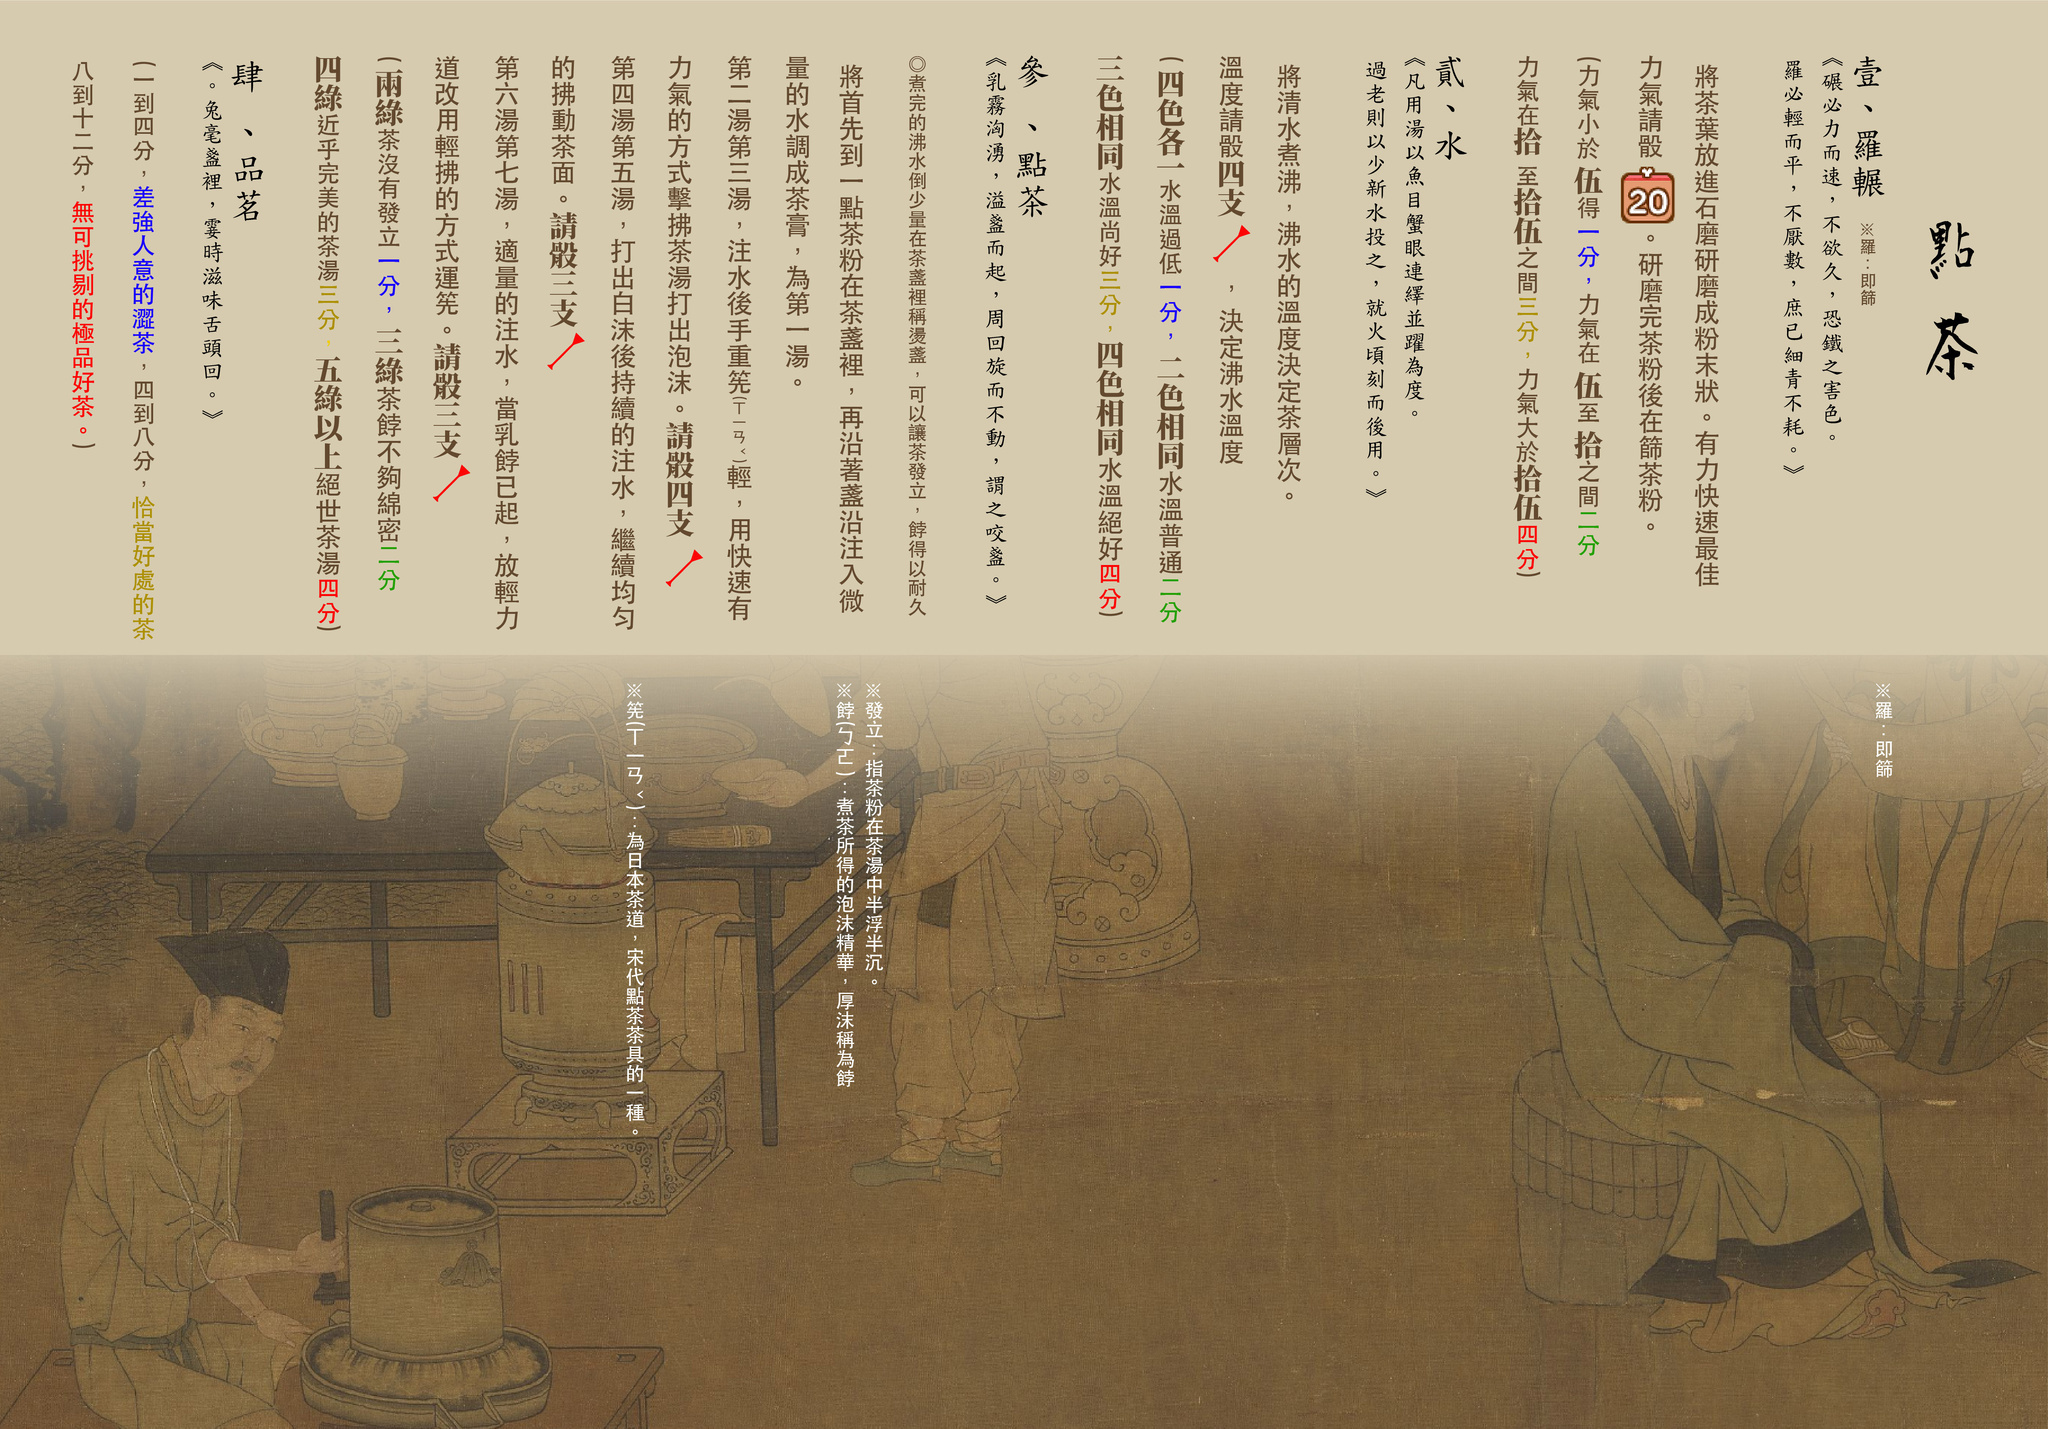 點茶
壹、羅輾 ※羅：即篩
《碾必力而速，不欲久，恐鐵之害色。
羅必輕而平，不厭數，庶已細青不耗。》
將茶葉放進石磨研磨成粉末狀。有力快速最佳
力氣請骰 20 。研磨完茶粉後在篩茶粉。
(力氣小於 伍得一分，力氣在 伍至 拾之間二分
力氣在拾 至拾伍之間三分，力氣大於拾伍四分)
貳、水
《凡用湯以魚目蟹眼連繹並躍為度。
過老則以少新水投之，就火頃刻而後用。》
將清水煮沸，沸水的溫度決定茶層次。
溫度請骰四支 ，決定沸水溫度
(四色各一 水溫過低一分，二色相同水溫普通二分
三色相同水溫尚好三分，四色相同水溫絕好四分)
參、點茶
《乳霧洶湧，溢盞而起，周回旋而不動，謂之咬盞。》
◎煮完的沸水倒少量在茶盞裡稱燙盞，可以讓茶發立，餑得以耐久
將首先到一點茶粉在茶盞裡，再沿著盞沿注入微
量的水調成茶膏，為第一湯。
第二湯第三湯，注水後手重筅(ㄒㄧㄢˇ)輕，用快速有
力氣的方式擊拂茶湯打出泡沫。請骰四支
第四湯第五湯，打出白沫後持續的注水，繼續均勻
的拂動茶面。請骰三支
第六湯第七湯，適量的注水，當乳餑已起，放輕力
道改用輕拂的方式運筅。請骰三支
(兩綠茶沒有發立一分，三綠茶餑不夠綿密二分
四綠近乎完美的茶湯三分，五綠以上絕世茶湯四分)
肆、品茗
《。兔毫盞裡，霎時滋味舌頭回。》
(一到四分，差強人意的澀茶，四到八分，恰當好處的茶
八到十二分，無可挑剔的極品好茶。)
※羅：即篩
※發立：指茶粉在茶湯中半浮半沉。
※餑(ㄅㄛ)：煮茶所得的泡沫精華，厚沫稱為餑
※筅(ㄒㄧㄢˇ)：為日本茶道，宋代點茶茶具的一種。